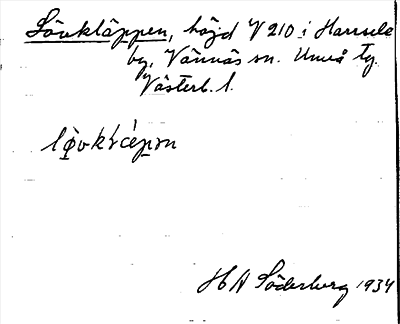 Lövkläppen, höjd V 210 i Harrsele
by, Vännäs sn. Umeå tg.
Västerb. l.
H A Söderberg 1934